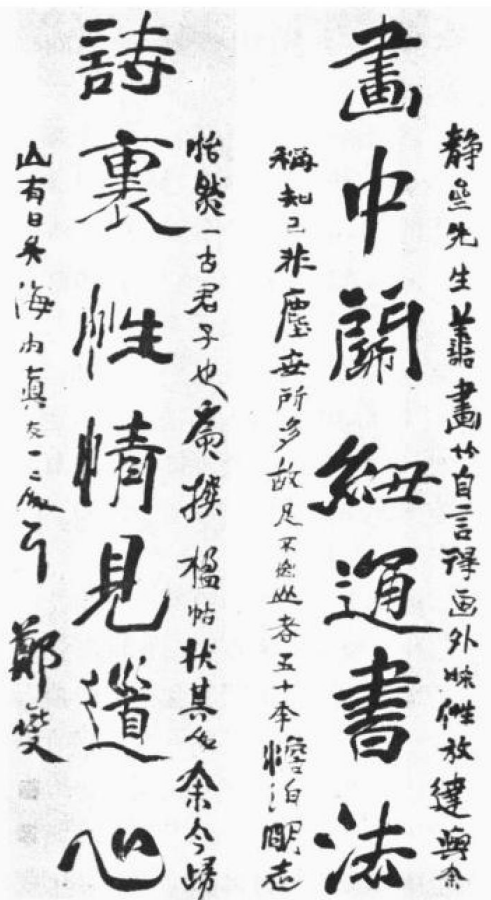 靜先生善畫竹自言得画外味性放達與余
畫中關紐通書法
稱知己非塵世所多故足不此者五十年憺泊明志
怡然一古君子也爰撰楹帖狀其人余今歸
詩裏性情見道心
山有日矣海内真友一鄭燮